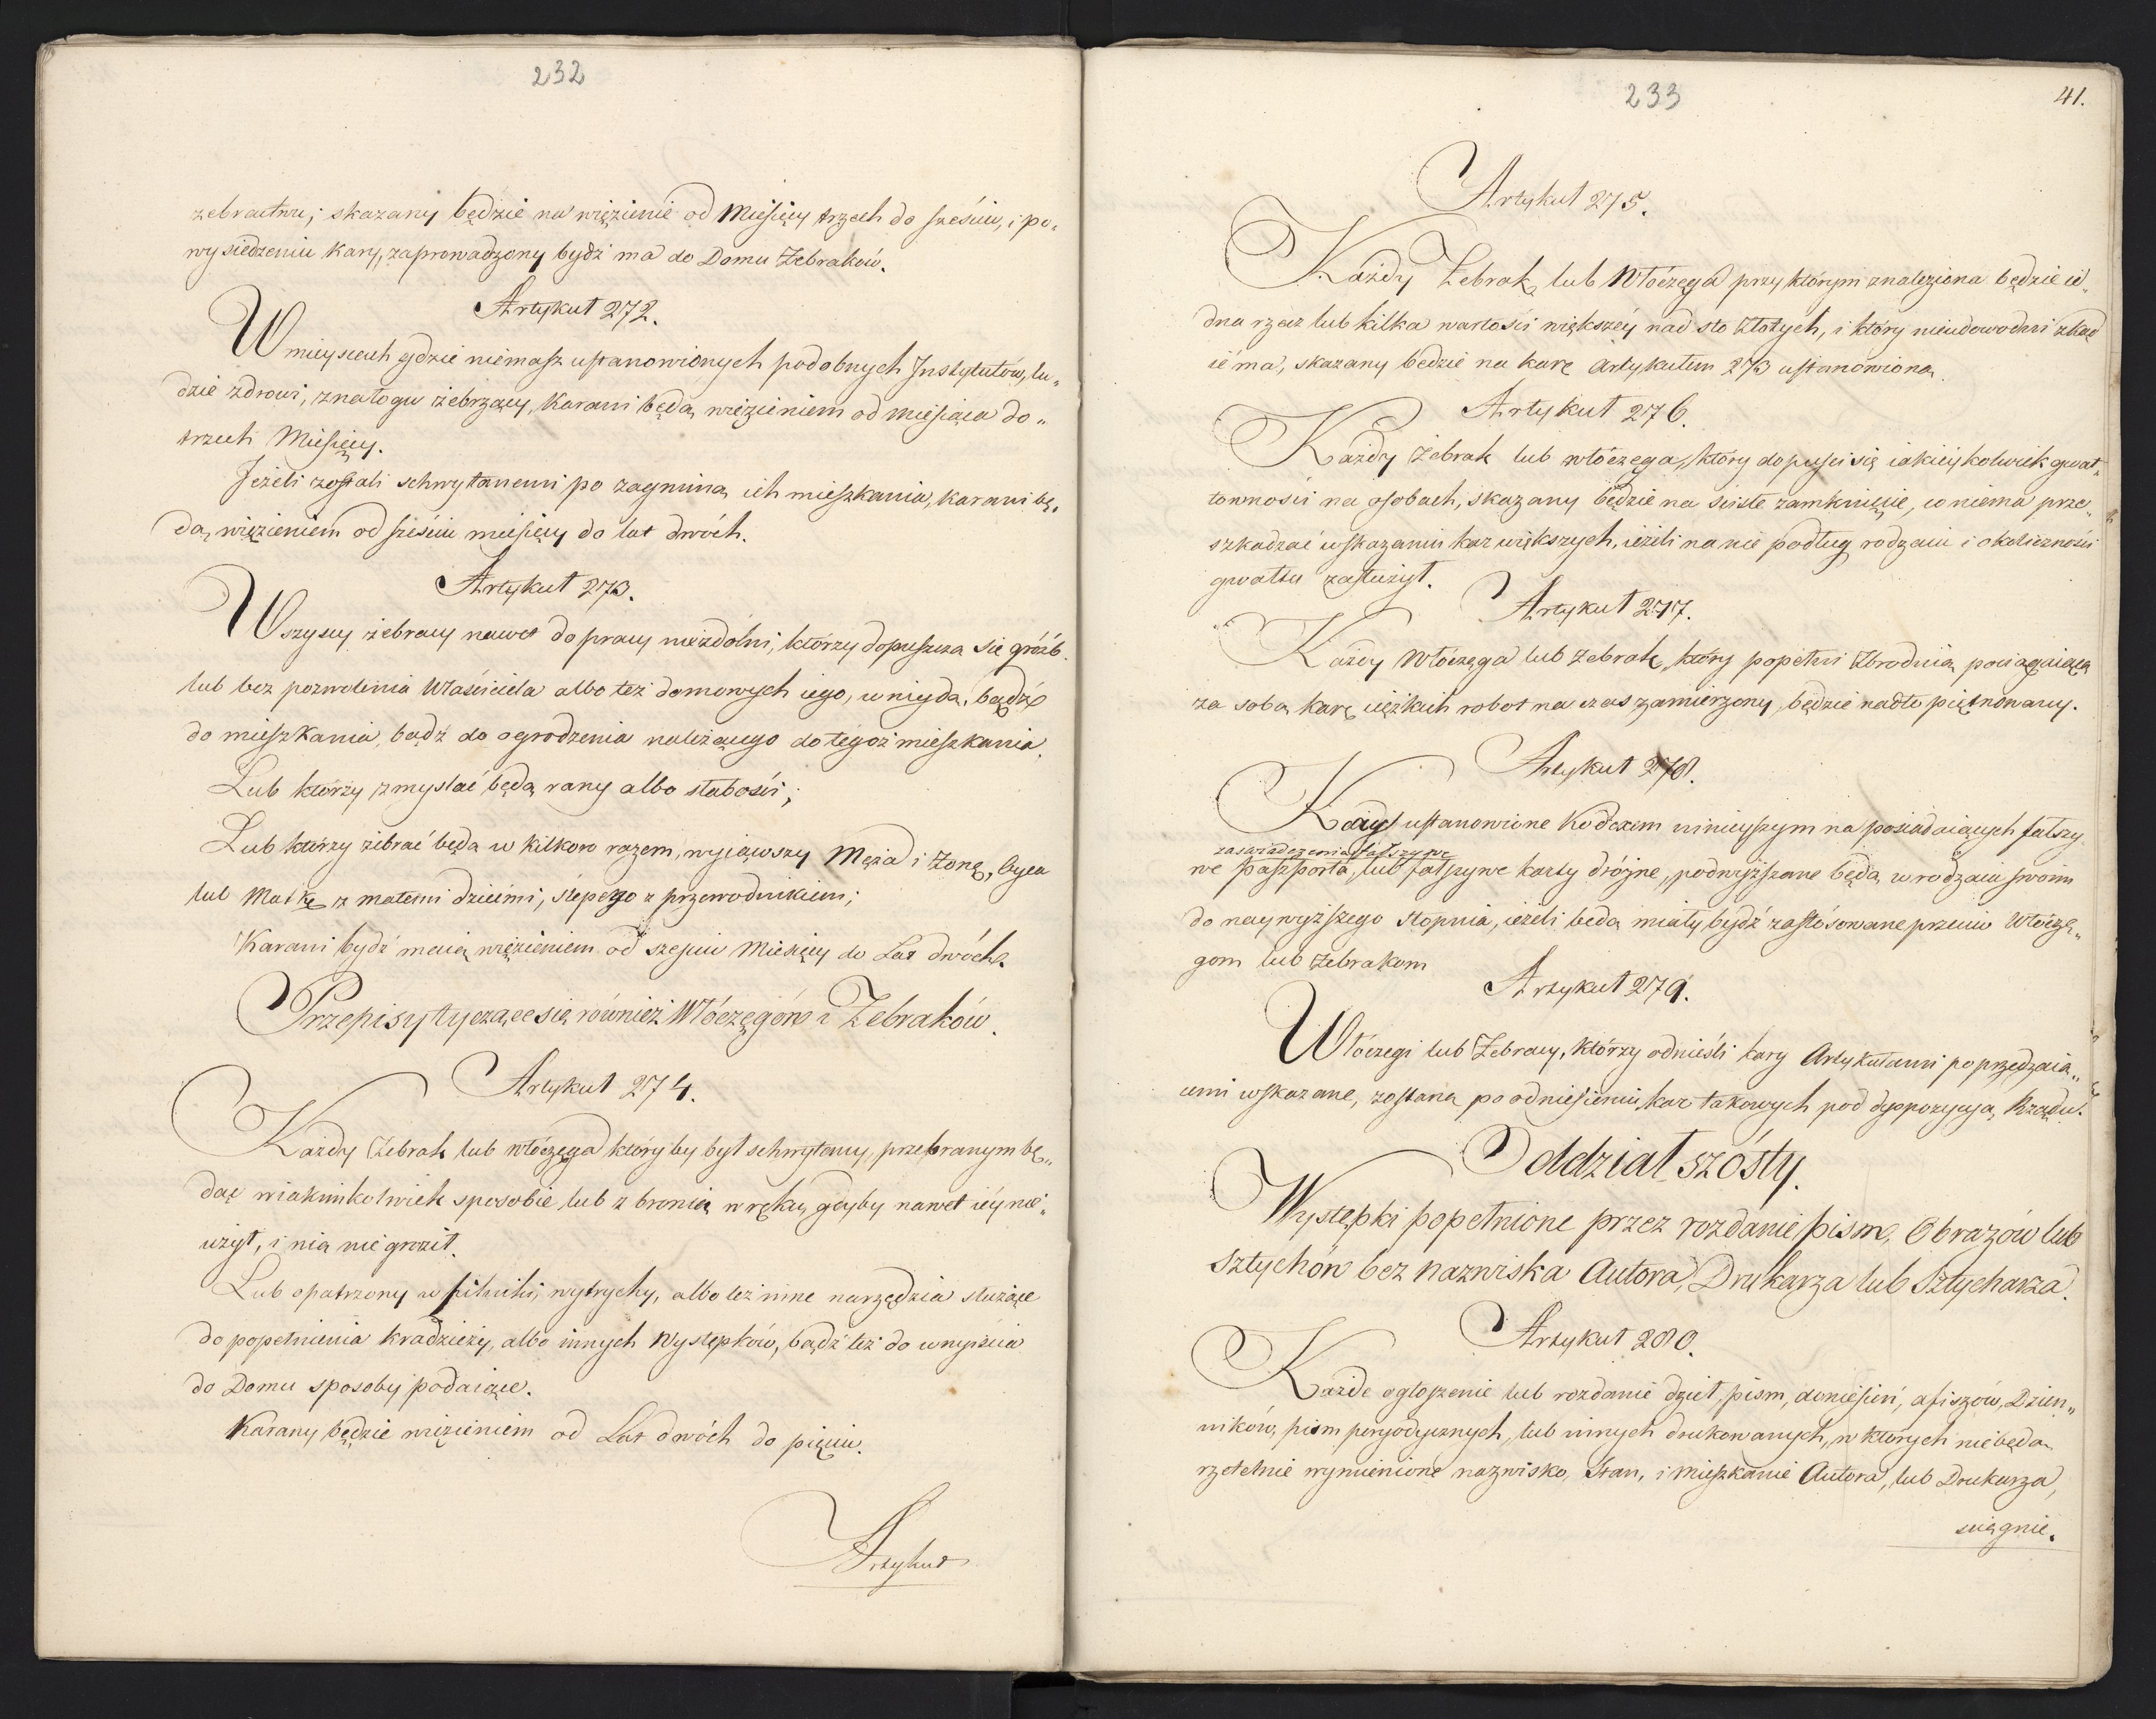 232
żebractwu; skazany będzie na więzienie od Miesięcy trzech do sześciu, i po„
wysiedzeniu kary, zaprowadzony bydź ma do Domu Żebraków.
Artykuł 272.
W mieyscach gdzie niemasz ustanowionych podobnych Jnstytutów, lu„
dzie zdrowi, znałogu żebrzący, karani będą więzieniem od miesiąca do„
trzech Miesięcy.
Jeżeli zostali schwytanemi po zagminą ich mieszkania, karani bę„
dą, więzieniem od sześciu miesięcy do lat dwóch.
Artykuł 273.
Wszyscy żebracy nawet do pracy niezdolni, którzy dopuszczą się gróźb
lub bez pozwolenia Właściciela albo też domowych iego, wniydą, bądźto
do mieszkania, bądź do ogrodzenia należącego do tegoż mieszkania.
Lub którzy zmyślać będą rany albo słabości;
Lub którzy żebrać będą w kilkoro razem, wyiąwszy Męża i Żonę, Oyca
lub Matkę z małemi dziećmi, ślepego z przewodnikiem;
Karani bydź maią więzieniem od sześciu Miesięcy do Lat dwóch.
Przepisy tyczące się również Włóczęgów i Żebraków.
Artykuł 274.
Każdy Żebrak lub włóczęga któryby był schwytany, przebranym bę„
dąc wiakimkolwiek sposobie, lub z bronią w ręku, gdyby nawet iéy nie„
użył, i nią nie groził.
Lub opatrzony w pilniki, wytrychy, albo też inne narzędzia służące
do popełnienia kradzieży, albo innych Występków, bądź też do wnyiścia
do Domu sposoby podaiące.
Karany będzie więzieniem od Lat dwóch do pięciu.
Artykuł
233
41.
Artykuł 275.
Każdy Żebrak, lub Włóczęga przy którym znaleziona będzie ie„
dna rzecz lub kilka wartości większéy nad sto Złotych, i który nieudowodni zkąd
ié ma, skazany będzie na karę Artykułem 273 ustanowioną.
Artykuł 276.
Każdy żebrak lub włóczęga, który dopuści się iakieykolwiek gwał„
towności na osobach, skazany będzie na ścisłe zamknięcie, co niema prze„
szkadzać wskazaniu kar większych, ieżeli na nie podług rodzaiu i okoliczności
gwałtu zasłużył.
Artykuł 277.
Każdy Włóczęga lub Żebrak, który popełni Zbrodnią pociągaiącą
za sobą karę ciężkich robot na czas zamierzony, będzie nadto piętnowany.
Artykuł 278.
Kary ustanowione Kodexem ninieyszym na posiadaiących fałszy„
zaświadczenia fałszywe
we paszporta, lub fałszywe karty dróżne, podwyższane będą w rodzaiu swoim
do naywyższego stopnia, ieżeli będą miały bydź zastósowane przeciw Włóczę„
gom lub żebrakom
Artykuł 279.
Włóczęgi lub Żebracy, którzy odnieśli kary Artykułami poprzedzaią„
cemi wskazane, zostaną po odniesieniu kar takowych pod dyspozycyą Rządu.
Oddział szósty.
Występki popełnione przez rozdanie pism, Obrazów lub
Sztychów bez nazwiska Autora, Drukarza lub Sztycharza.
Artykuł 280.
Każde ogłoszenie lub rozdanie dzieł, pism, doniesień, afiszów, Dzien„
ników, pism peryodycznych, lub innych drukowanych, w których nie będą
rzetelnie wymienione nazwisko, Stan, i mieszkanie Autora, lub Drukarza,
ściągnie.